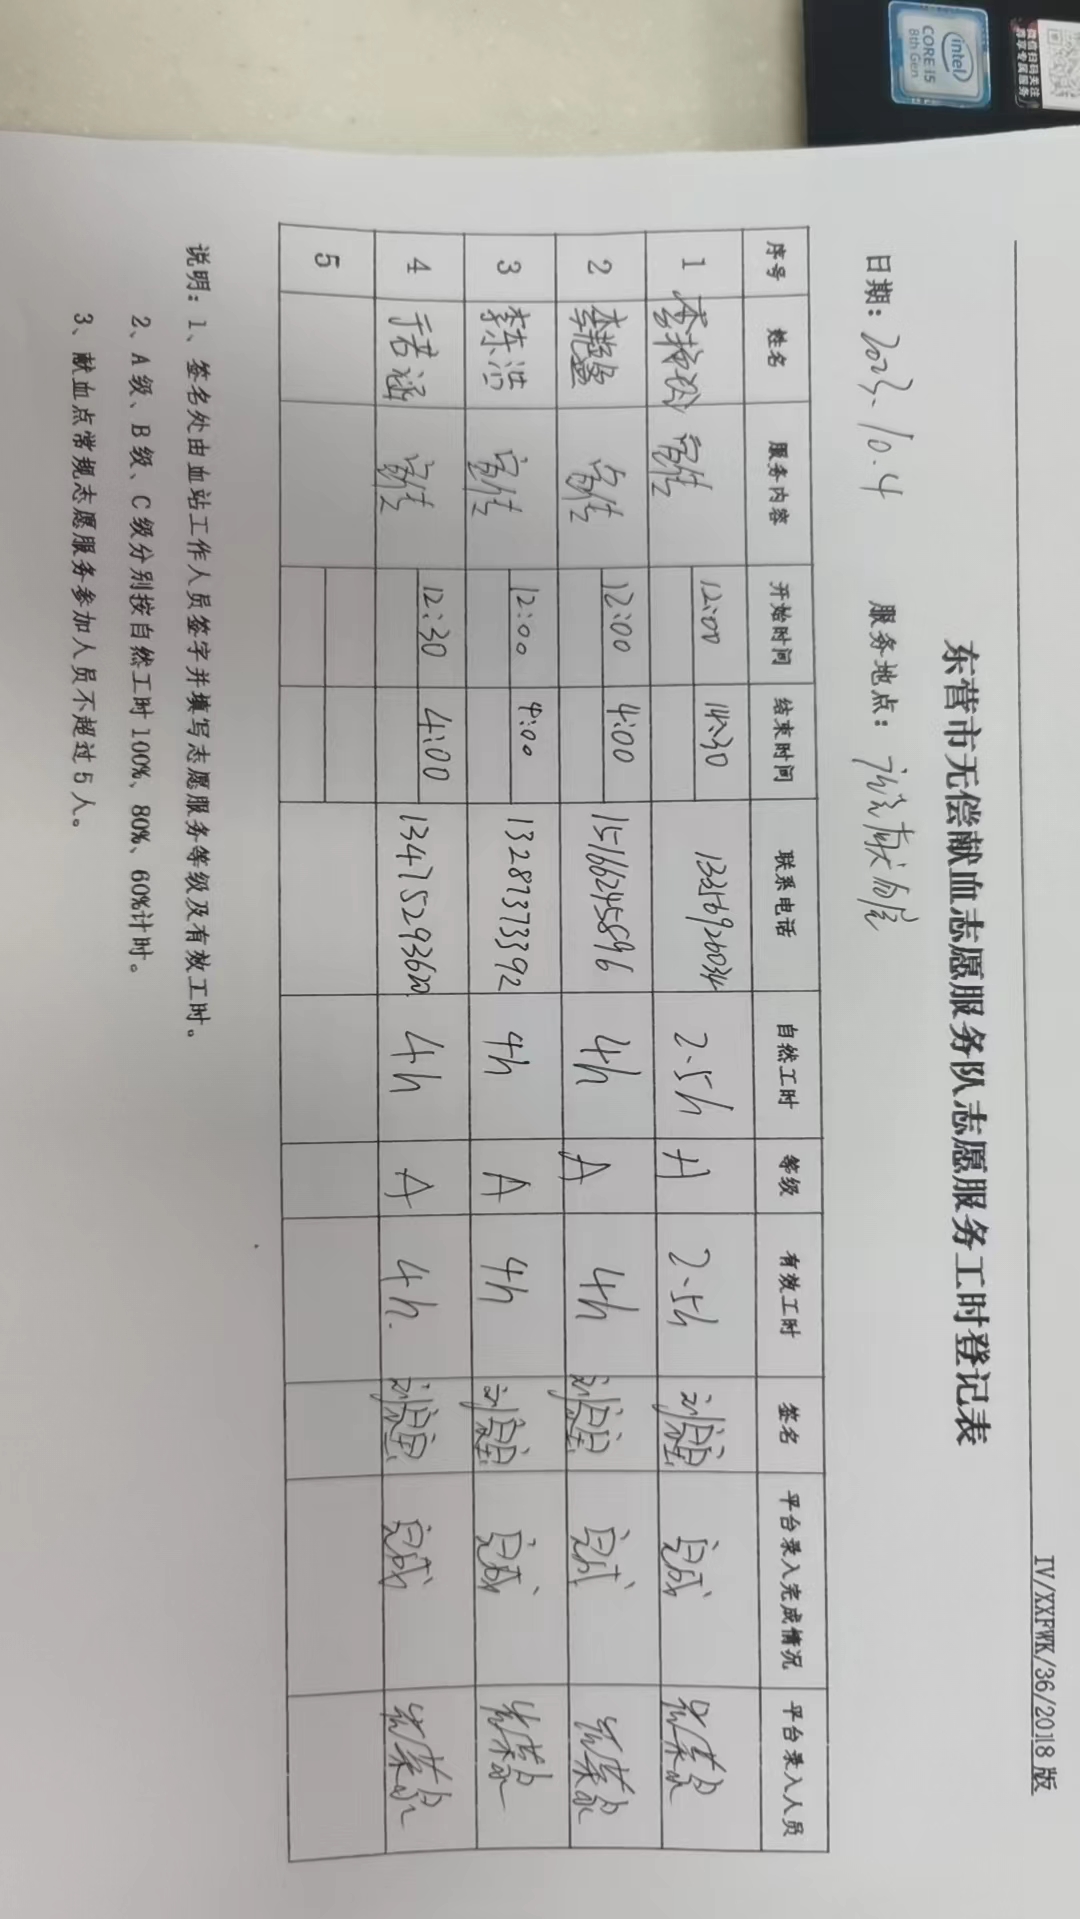 intel
CORE i5
8th Gen
微信扫码关注
尊享专属服务
IV/XXFWK/36/2018 版
东营市无偿献血志愿服务队志愿服务工时登记表
日期：2023.10.4 服务地点：献血屋
序号 姓名 服务内容 开始时间 结束时间 联系电话 自然工时 等级 有效工时 签名 平台录入完成情况 平台录入人员
1 宣传 12:00 14:30 13356926034 2.5h A 2.5h 完成
2 宣传 12:00 4:00 15166245896 4h A 4h 完成
3 李东浩 宣传 12:00 4:00 13287373392 4h A 4h 完成
4 于若涵 宣传 12:30 4:00 13475293620 4h A 4h. 完成
5
说明：1、签名处由血站工作人员签字并填写志愿服务等级及有效工时。
2、A 级、B 级、C 级分别按自然工时 100%、80%、60%计时。
3、献血点常规志愿服务参加人员不超过 5 人。